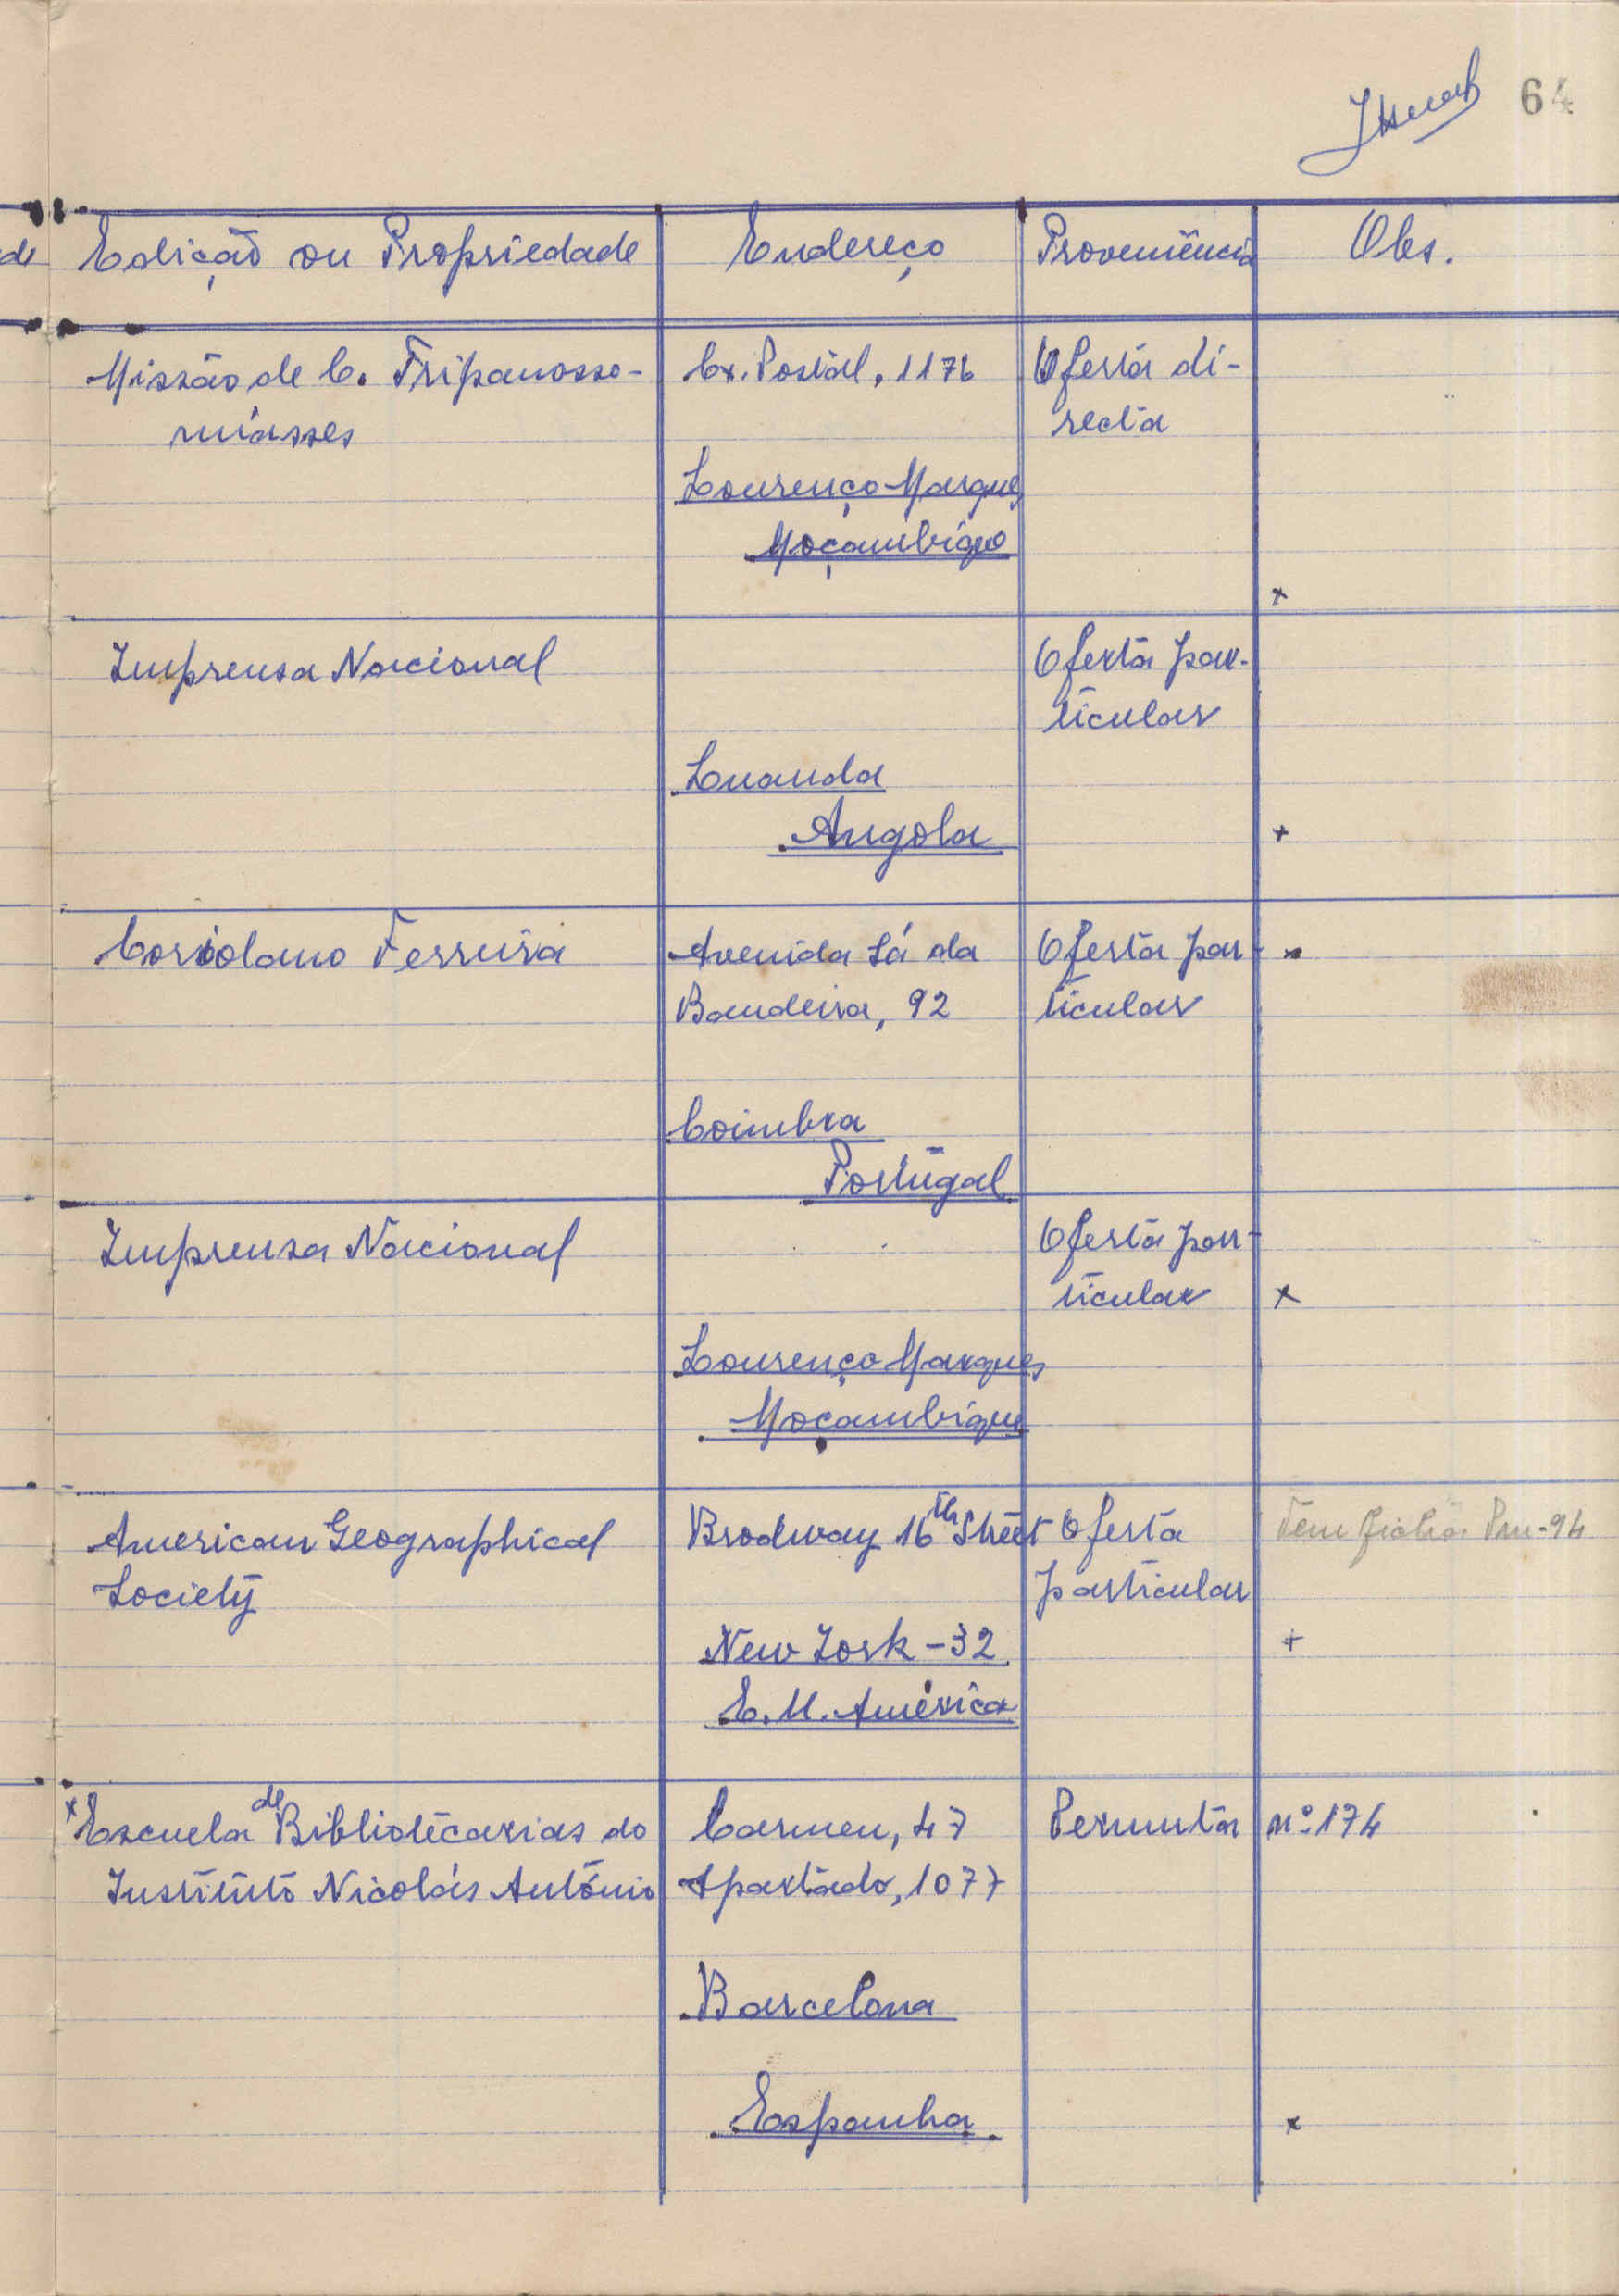 64
de Edição ou Propriedade Endereço Proveniência Obs.
Missão de C. Tripanosso- Cx. Postal, 1176 Oferta di-
miasses recta
Lourenço Marques
Moçambique
x
Imprensa Nacional Oferta par-
ticular
Luanda
Angola +
Coriolano Ferreira Avenida Sá da Oferta par- x
Bandeira, 92 ticular
Coimbra
Portugal
Imprensa Nacional Oferta par-
ticular x
Lourenço Marques
Moçambique
American Geographical Brodway 16th Street Oferta Tem ficha Pm-94
Society particular
New York - 32 +
E. U. América
x Escuela de Bibliotecarias do Carmen, 47 Permuta nº 174
Instituto Nicolás António Apartado, 1077
Barcelona
Espanha x